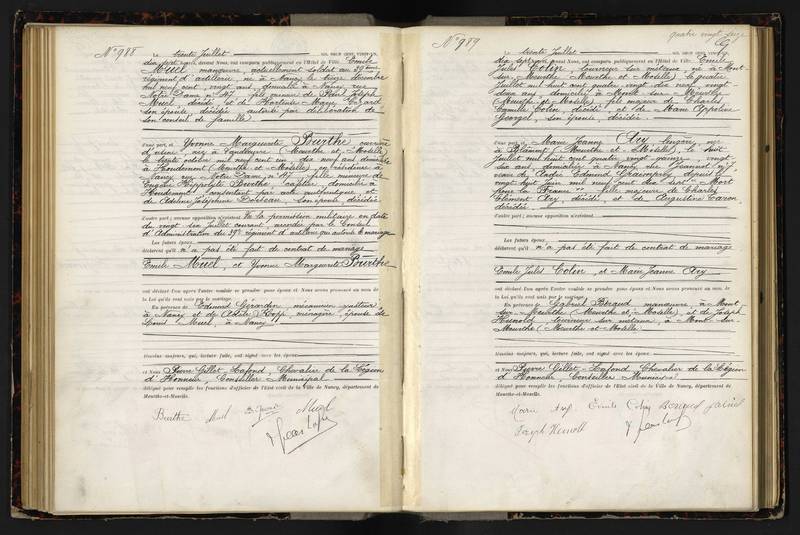 N° 988
Le trente Juillet MIL NEUF CENT VINGT-UN,
devant Nous, ont comparu publiquement en l'Hôtel de Ville Emile
Muel, manœuvre, actuellement soldat au 39me
régiment d'artillerie, né à Nancy, le treize décembre
mil neuf cent, vingt ans, domicilié à Nancy, rue
Notre Dame n° 147, fils mineur de Joseph
Muel, décédé et de Hortense Marie Girard
son épouse, décédée, autorisé par délibération de
son conseil de famille
d'une part, et Yvonne Marguerite Burthé, ouvrière
d'usine, née à Vandœuvre (Meurthe et Moselle)
le trente octobre mil neuf cent un, dix neuf ans, domiciliée
à Houdemont (Meurthe et Moselle), en résidence à
Nancy, rue Notre Dame, n° 147, fille mineure de
Eugène Hippolyte Burthé, domicilié à
Houdemont, consentant par acte authentique et
de Adeline Joséphine son épouse, décédée
d'autre part; aucune opposition n'existant. Vu la permission militaire en date
du vingt six Juillet courant, accordée par le Conseil
d'Administration du 39e régiment d'artillerie qui autorise le mariage
Les futurs époux
déclarent qu'il n'a pas été fait de contrat de mariage
Emile Muel, et Yvonne Marguerite Burthé
ont déclaré l'un après l'autre vouloir se prendre pour époux et Nous avons prononcé au nom de
la Loi qu'ils sont unis par le mariage.
En présence de Edmond Girardin, mécanicien
à Nancy et de ménagère, épouse de
Louis Muel, à Nancy
Témoins majeurs, qui, lecture faite, ont signé avec les époux
et Nous Pierre Gillet-Lafond, Chevalier de la Légion
d'Honneur, Conseiller Municipal
délégué pour remplir les fonctions d'officier de l'Etat civil de la Ville de Nancy, département de
Meurthe-et-Moselle.
Burthé Muel Muel
quatre vingt seize
N° 989
Le trente Juillet MIL NEUF CENT VINGT-
devant Nous, ont comparu publiquement en l'Hôtel de Ville Emile
Jules Colin, tourneur sur métaux, né à Mont-
sur-Meurthe (Meurthe et Moselle) le quatre
Juillet mil huit cent quatre vingt dix neuf, vingt-
deux ans, domicilié à Mont-sur-Meurthe
(Meurthe et Moselle), fils majeur de Charles
Camille Colin, décédé, et de Marie Appoline
Georgel, son épouse, décédée
d'une part, et Marie Jeanne Ary, lingère, née
à Blâmont (Meurthe et Moselle) le huit
Juillet mil huit cent quatre vingt onze,
ans, domiciliée à Nancy, rue Jeannot n° 7,
veuve de André Edmond depuis le
vingt huit juin mil neuf cent dix sept "Mort
pour la France", fille majeure de Charles
Clément Ary, décédé, et de Augustine Caron
décédée
d'autre part; aucune opposition n'existant.
Les futurs époux
déclarent qu'il n'a pas été fait de contrat de mariage
Emile Jules Colin, et Marie Jeanne Ary
ont déclaré l'un après l'autre vouloir se prendre pour époux et Nous avons prononcé au nom de
la Loi qu'ils sont unis par le mariage.
En présence de Gabriel manœuvre, à Mont-
sur-Meurthe (Meurthe et Moselle), et de Joseph
tourneur sur métaux, à Mont-sur-
Meurthe (Meurthe et Moselle)
Témoins majeurs, qui, lecture faite, ont signé avec les époux
et Nous Pierre Gillet-Lafond, Chevalier de la Légion
d'Honneur, Conseiller Municipal
délégué pour remplir les fonctions d'officier de l'Etat civil de la Ville de Nancy, département de
Meurthe-et-Moselle.
Marie Ary Emile Colin Gabriel
Joseph